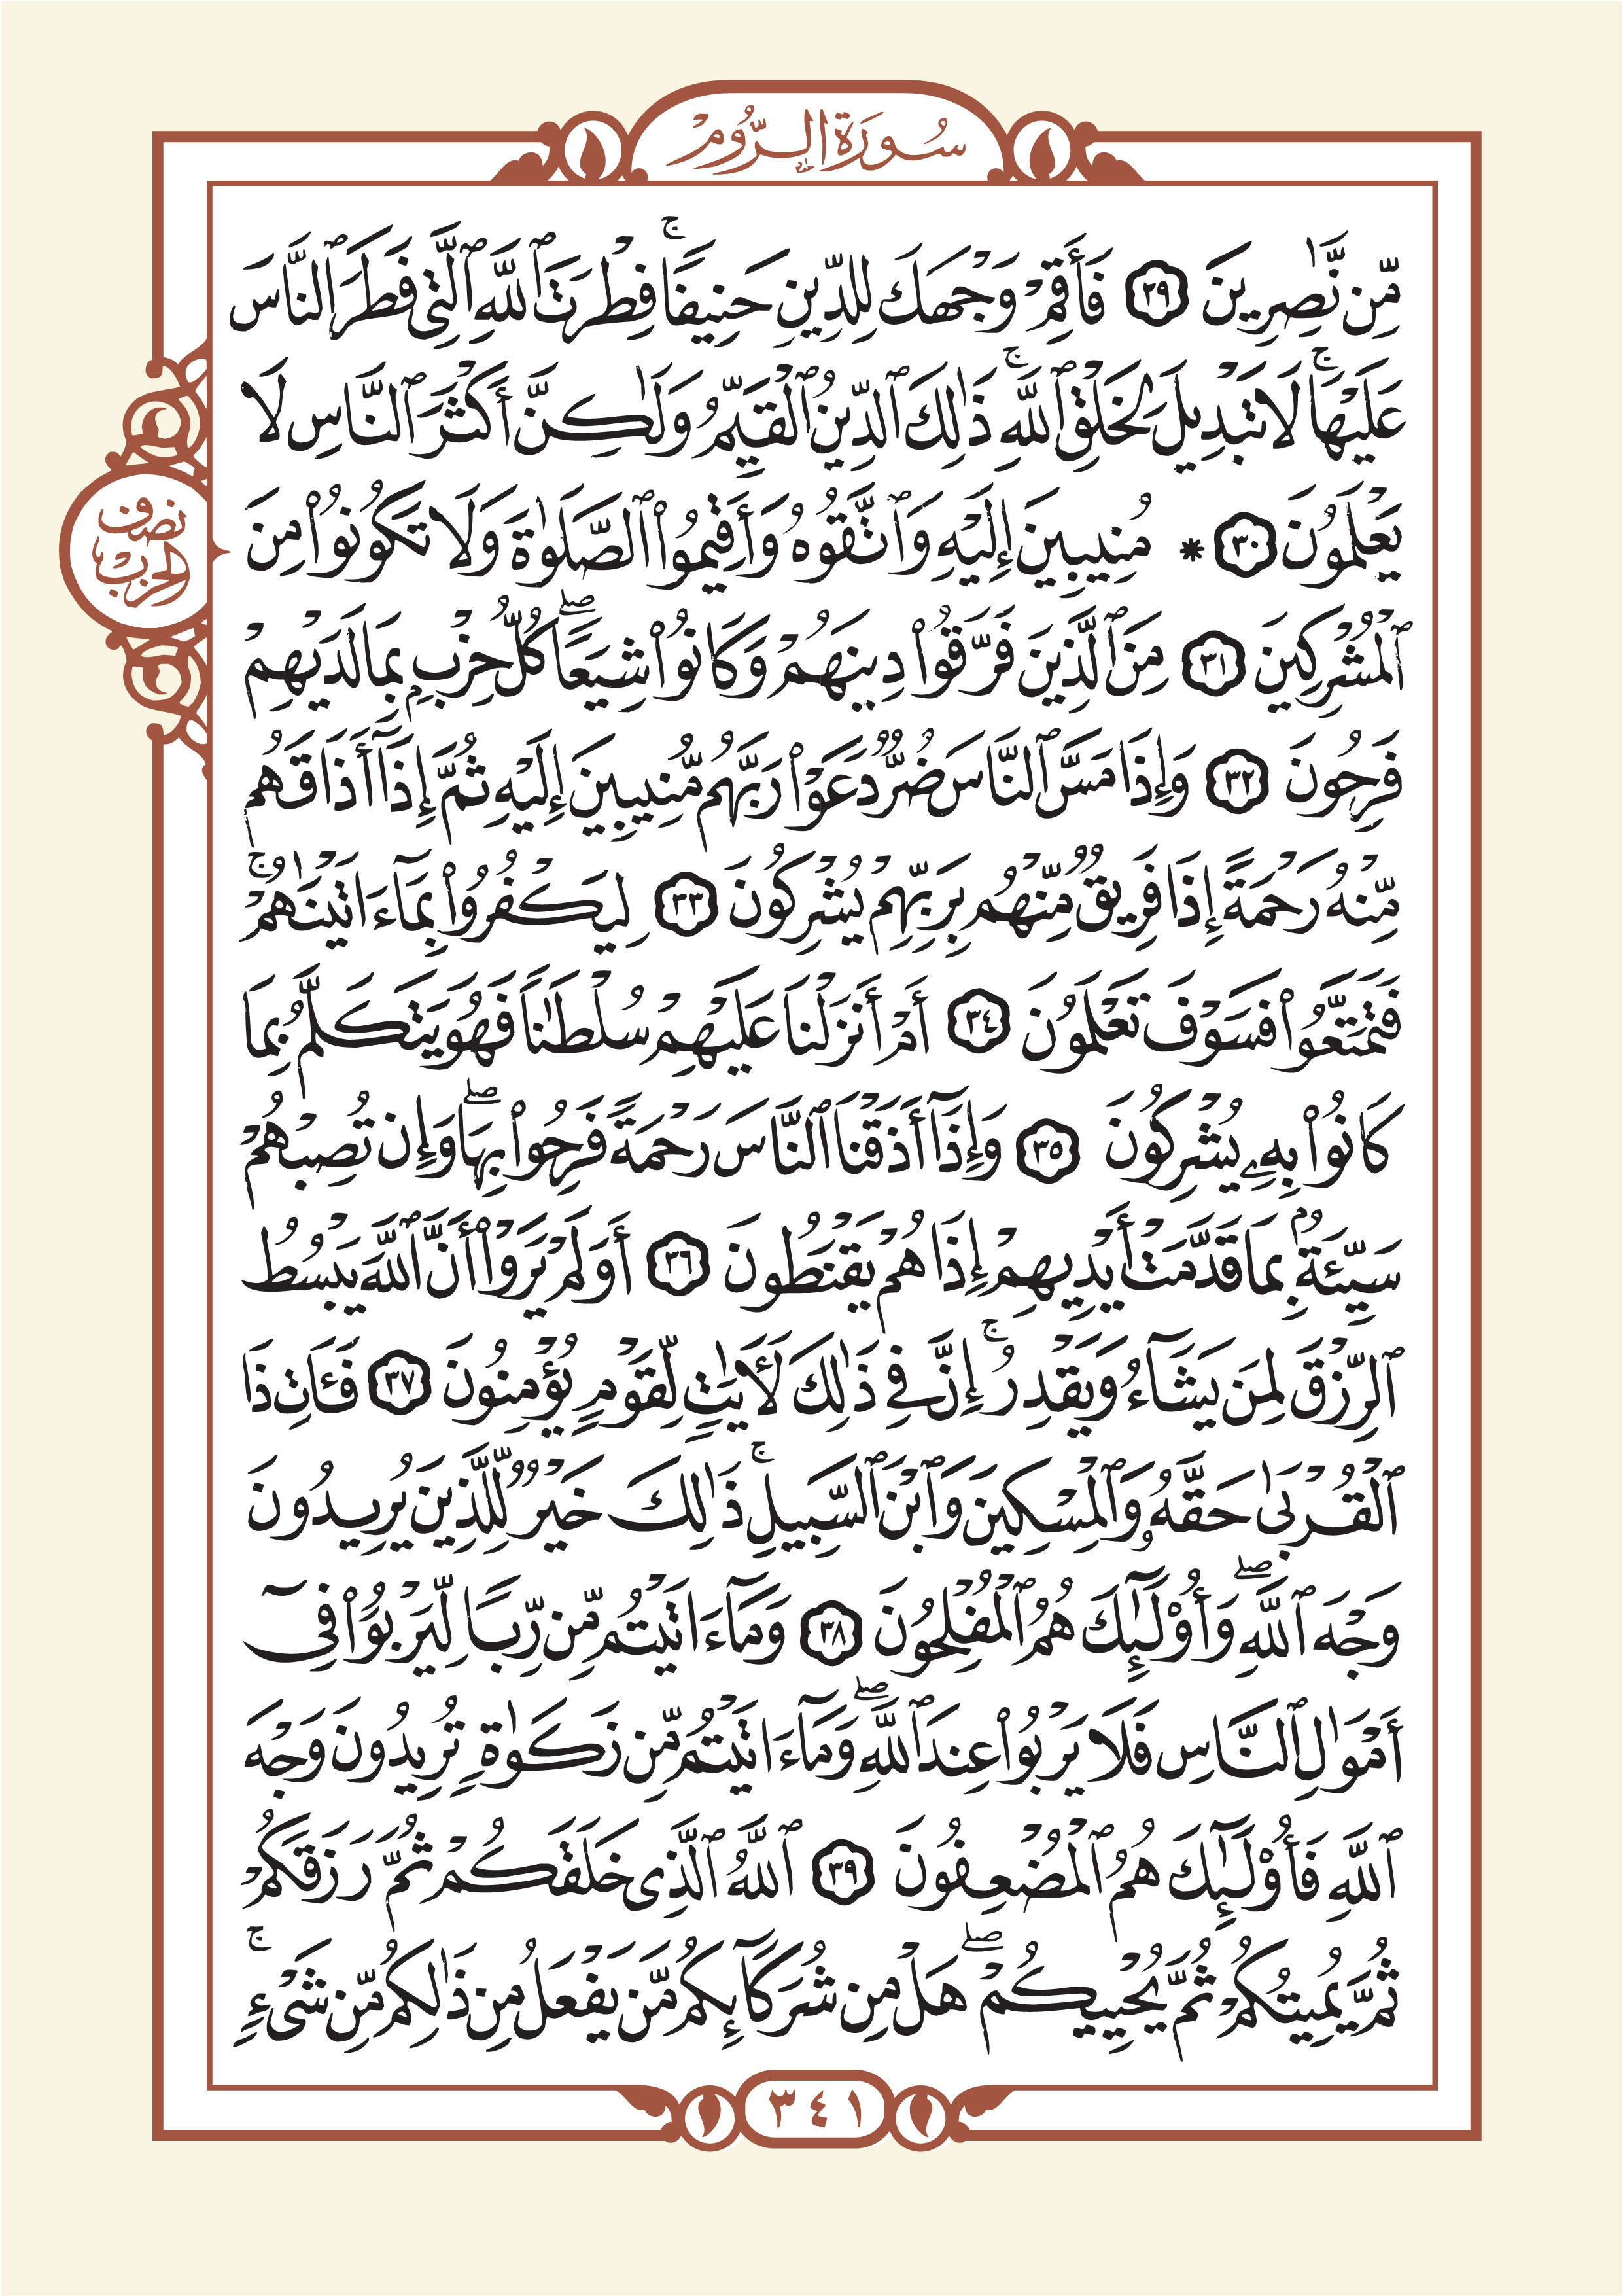 سُورَةُ الرُّومِ
مِّن نَّٰصِرِينَ ٢٩ فَأَقِمْ وَجْهَكَ لِلدِّينِ حَنِيفًاۚ فِطْرَتَ ٱللَّهِ ٱلَّتِى فَطَرَ ٱلنَّاسَ
عَلَيْهَاۚ لَا تَبْدِيلَ لِخَلْقِ ٱللَّهِۚ ذَٰلِكَ ٱلدِّينُ ٱلْقَيِّمُ وَلَٰكِنَّ أَكْثَرَ ٱلنَّاسِ لَا
يَعْلَمُونَ ٣٠ * مُنِيبِينَ إِلَيْهِ وَٱتَّقُوهُ وَأَقِيمُوا۟ ٱلصَّلَوٰةَ وَلَا تَكُونُوا۟ مِنَ
نصف
الحزب
ٱلْمُشْرِكِينَ ٣١ مِنَ ٱلَّذِينَ فَرَّقُوا۟ دِينَهُمْ وَكَانُوا۟ شِيَعًاۖ كُلُّ حِزْبٍۭ بِمَا لَدَيْهِمْ
فَرِحُونَ ٣٢ وَإِذَا مَسَّ ٱلنَّاسَ ضُرٌّ دَعَوْا۟ رَبَّهُم مُّنِيبِينَ إِلَيْهِ ثُمَّ إِذَآ أَذَاقَهُم
مِّنْهُ رَحْمَةً إِذَا فَرِيقٌ مِّنْهُم بِرَبِّهِمْ يُشْرِكُونَ ٣٣ لِيَكْفُرُوا۟ بِمَآ ءَاتَيْنَٰهُمْۚ
فَتَمَتَّعُوا۟ فَسَوْفَ تَعْلَمُونَ ٣٤ أَمْ أَنزَلْنَا عَلَيْهِمْ سُلْطَٰنًا فَهُوَ يَتَكَلَّمُ بِمَا
كَانُوا۟ بِهِۦ يُشْرِكُونَ ٣٥ وَإِذَآ أَذَقْنَا ٱلنَّاسَ رَحْمَةً فَرِحُوا۟ بِهَاۖ وَإِن تُصِبْهُمْ
سَيِّئَةٌۢ بِمَا قَدَّمَتْ أَيْدِيهِمْ إِذَا هُمْ يَقْنَطُونَ ٣٦ أَوَلَمْ يَرَوْا۟ أَنَّ ٱللَّهَ يَبْسُطُ
ٱلرِّزْقَ لِمَن يَشَآءُ وَيَقْدِرُۚ إِنَّ فِى ذَٰلِكَ لَءَايَٰتٍ لِّقَوْمٍ يُؤْمِنُونَ ٣٧ فَـَٔاتِ ذَا
ٱلْقُرْبَىٰ حَقَّهُۥ وَٱلْمِسْكِينَ وَٱبْنَ ٱلسَّبِيلِۚ ذَٰلِكَ خَيْرٌ لِّلَّذِينَ يُرِيدُونَ
وَجْهَ ٱللَّهِۖ وَأُو۟لَٰٓئِكَ هُمُ ٱلْمُفْلِحُونَ ٣٨ وَمَآ ءَاتَيْتُم مِّن رِّبًا لِّيَرْبُوَا۟ فِىٓ
أَمْوَٰلِ ٱلنَّاسِ فَلَا يَرْبُوا۟ عِندَ ٱللَّهِۖ وَمَآ ءَاتَيْتُم مِّن زَكَوٰةٍ تُرِيدُونَ وَجْهَ
ٱللَّهِ فَأُو۟لَٰٓئِكَ هُمُ ٱلْمُضْعِفُونَ ٣٩ ٱللَّهُ ٱلَّذِى خَلَقَكُمْ ثُمَّ رَزَقَكُمْ
ثُمَّ يُمِيتُكُمْ ثُمَّ يُحْيِيكُمْۖ هَلْ مِن شُرَكَآئِكُم مَّن يَفْعَلُ مِن ذَٰلِكُم مِّن شَىْءٍۚ
٣٤١